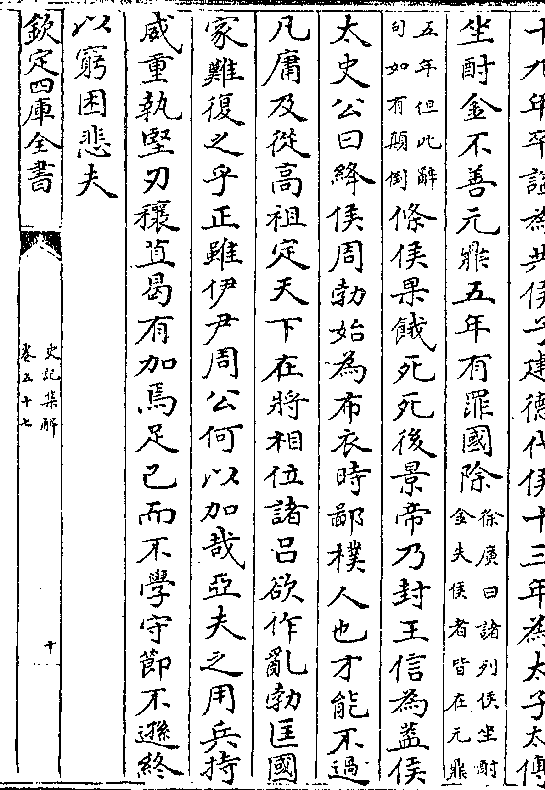 十九年卒諡為共侯子建德代侯十三年為太子太傅
坐酎金不善元鼎五年有罪國除徐廣曰諸列侯坐酎金失侯者皆在元鼎
五年但此辭句如有顛倒條侯果餓死死後景帝乃封王信為蓋侯
太史公曰絳侯周勃始為布衣時鄙樸人也才能不過
凡庸及從高祖定天下在將相位諸呂欲作亂勃匡國
家難復之乎正雖伊尹周公何以加哉亞夫之用兵持
威重執堅刃穰苴曷有加焉足已而不學守節不遜終
以窮困悲夫
欽定四庫全書
史記集解
卷五十七
十